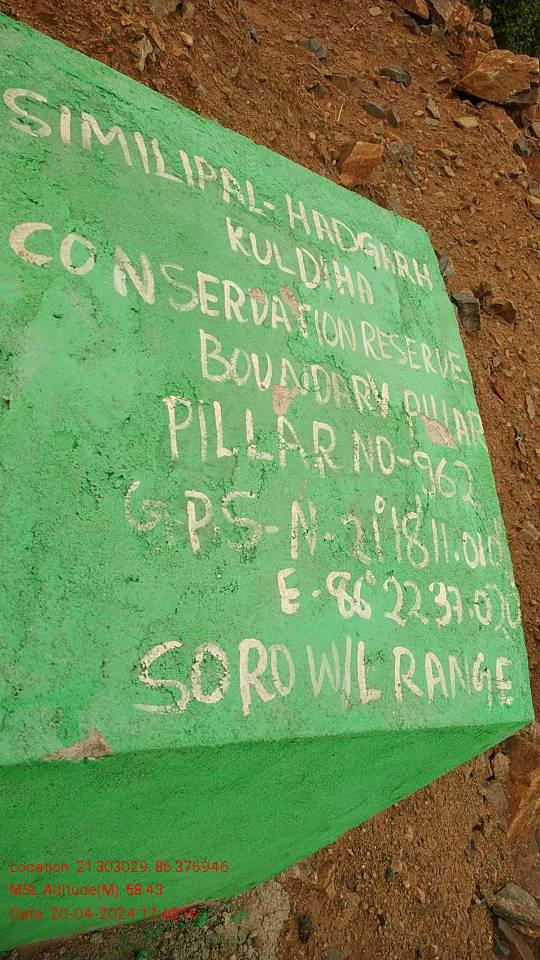 SIMILIPAL-HADGARH
KULDIHA
CONSERVATION RESERVE
BOUNDARY PILLAR
PILLAR NO-962
GPS-N-21°18'11.010
E-86°22'37.020
SORO W/L RANGE
Location: 21.303029, 86.376946
MSL Altitude(M): 58.43
Date: 20-04-2024